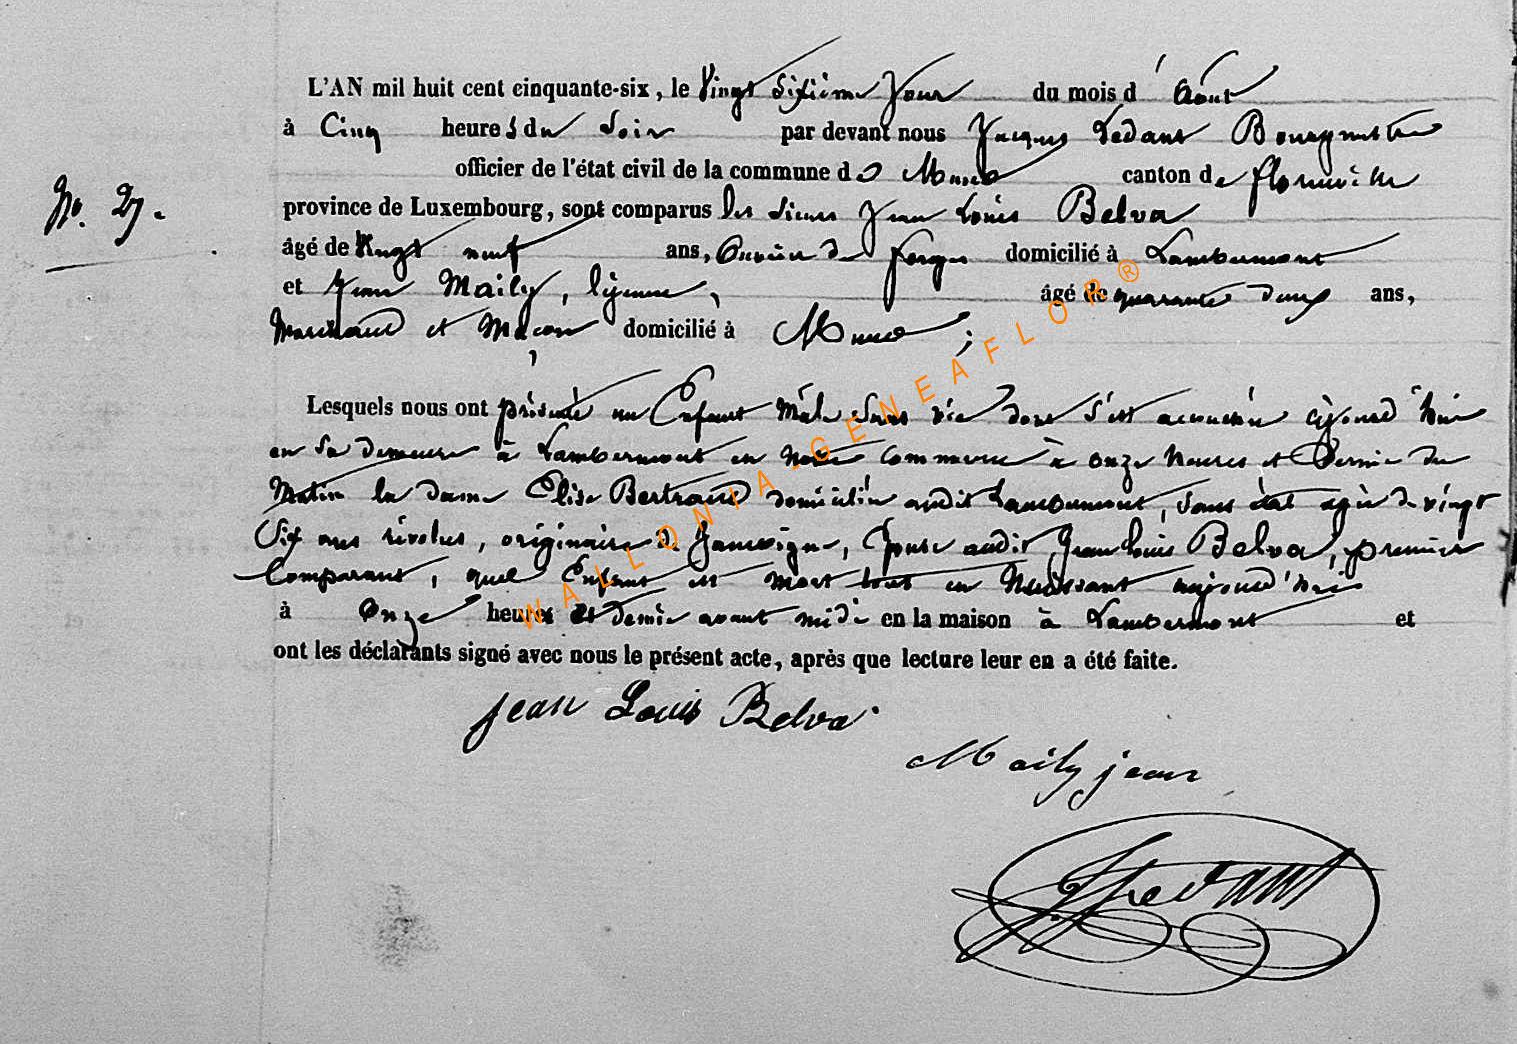 L'AN mil huit cent cinquante-six, le Vingt Sixième Jour du mois d' Août
à Cinq heures du Soir par devant nous Jacques Ledant Bourgmestre
officier de l'état civil de la commune de Muno canton de florenville
No. 27.
province de Luxembourg, sont comparus les Sieurs Jean Louis Belva
âgé de Vingt neuf ans, Ouvrier de forges domicilié à Lambermont
et Jean Maily, âgé de quarante deux ans,
Marchand et Maçon domicilié à Muno ;
Lesquels nous ont présenté un Enfant Mâle Sans vie dont S'est accouchée aujourd'hui
en Sa demeure à Lambermont en Notre commune à onze heures et Demie du
Matin la dame Elise Bertrand domiciliée audit Lambermont, Sans état agée de vingt
Six ans révolus, originaire de Jamoigne, Epouse audit Jean Louis Belva, premier
Comparant, quel Enfant est mort tout en Naissant aujourd'hui
à Onze heures et demie avant midi en la maison à Lambermont et
ont les déclarants signé avec nous le présent acte, après que lecture leur en a été faite.
jean Louis Belva
Maily jean
JLedant
WALLONIA-GENEAFLOR®